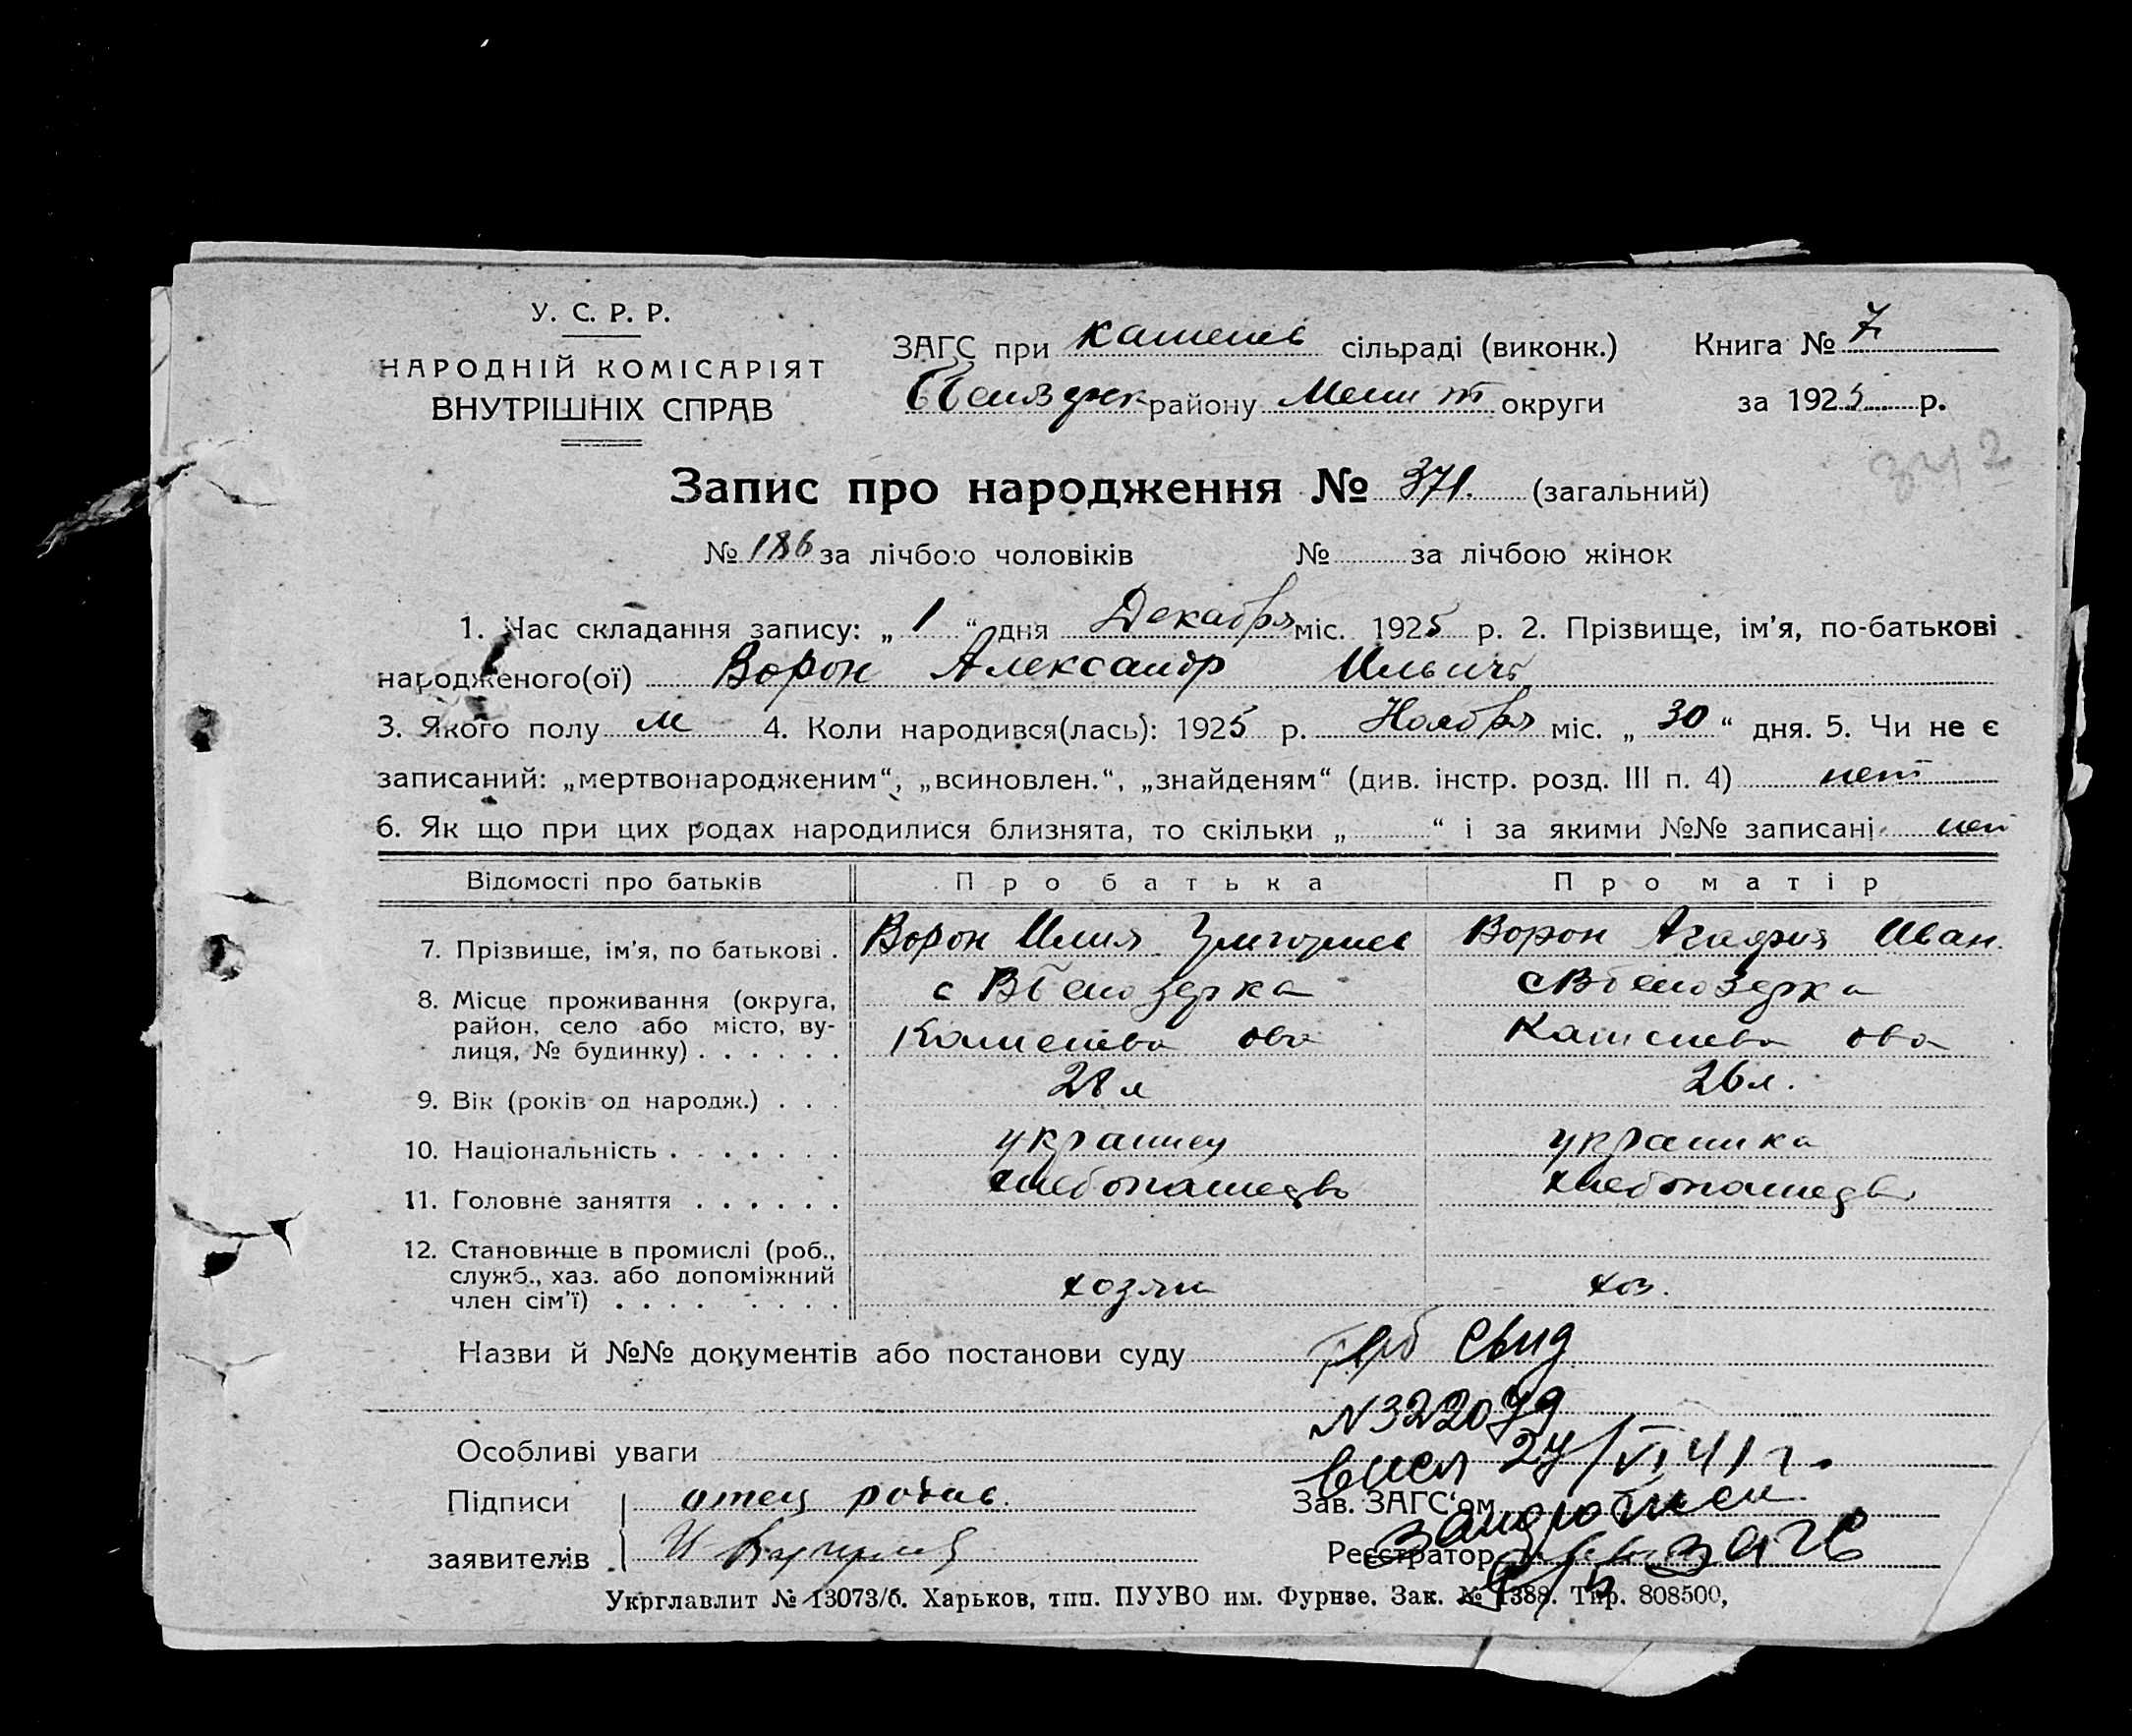 У. С. Р. Р.
НАРОДНІЙ КОМІСАРІЯТ
ВНУТРІШНІХ СПРАВ
ЗАГС при Каменев сільраді (виконк.)
району Мелит округи
Книга № 7
за 1925 р.
342
Запис про народження № 371. (загальний)
№ 186 за лічбою чоловіків № за лічбою жінок
1. Час складання запису: „ 1 “ дня Декабря міс. 1925 р. 2. Прізвище, ім’я, по-батькові
народженого(ої) Ворон Александр Ильич
3. Якого полу м 4. Коли народився(лась): 1925 р. Ноября міс. „ 30 “ дня. 5. Чи не є
записаний: „мертвонародженим“, „всиновлен.“, „знайденям“ (див. інстр. розд. III п. 4) нет
6. Як що при цих родах народилися близнята, то скільки „ “ і за якими №№ записані нет
Відомості про батьків Про батька Про матір
7. Прізвище, ім’я, по батькові . Ворон Илия Григориев Ворон Агафия Иван.
8. Місце проживання (округа, с ВБелозерка с ВБелозерка
район, село або місто, ву-
лиця, № будинку) . . . . . . Каменева ова Каменева ова
9. Вік (років од народж.) . . . 28 л 26 л.
10. Національність . . . . . . . украинец украинка
11. Головне заняття . . . . . . хлебопашедв хлебопашедв
12. Становище в промислі (роб.,
служб., хаз. або допоміжний
член сім’ї) . . . . . . . . хозяин хоз.
Назви й №№ документів або постанови суду герб Свид
N322079
Особливі уваги 24/VI 41 г.
Підписи отец
заявителів
Зав. ЗАГС‘ом
Реєстратор загс
Укрглавлит № 13073/б. Харьков, тип. ПУУВО им. Фрунзе. Зак. № 1388. Тир. 808500,